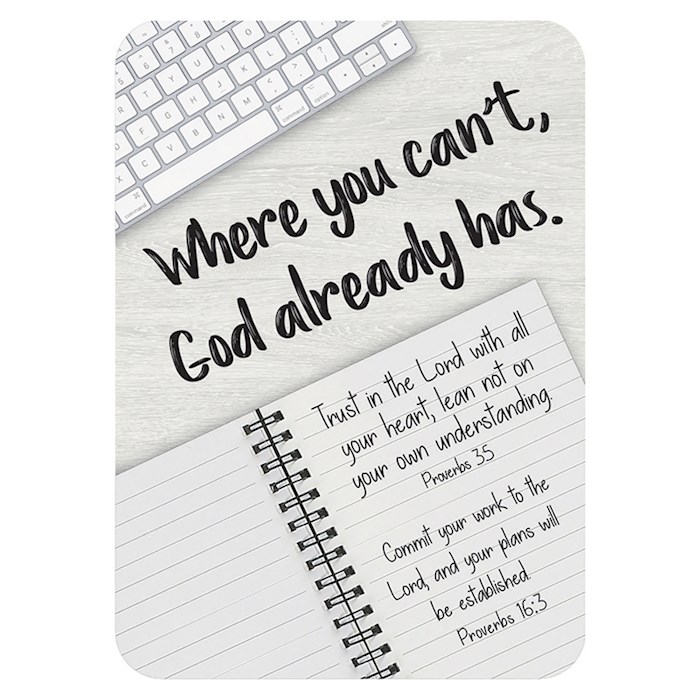 Where you can't,
God already has.
Trust in the Lord with all
your heart, lean not on
your own understanding.
Proverbs 3:5
Commit your work to the
Lord, and your plans will
be established.
Proverbs 16:3